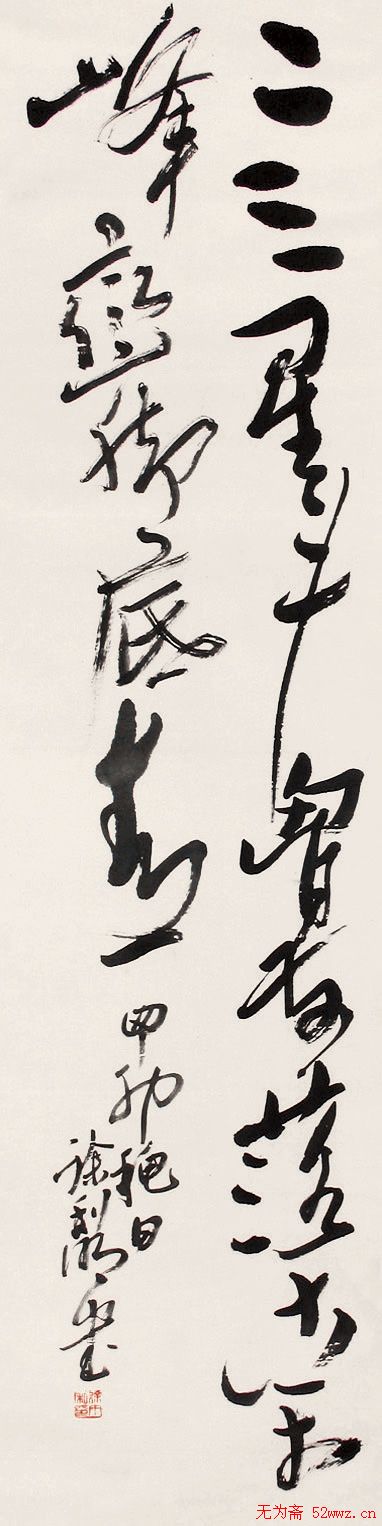 二三星斗胸前落十万
峰巒脚底青
穐日
徐利明
无为斋 52wwz.cn